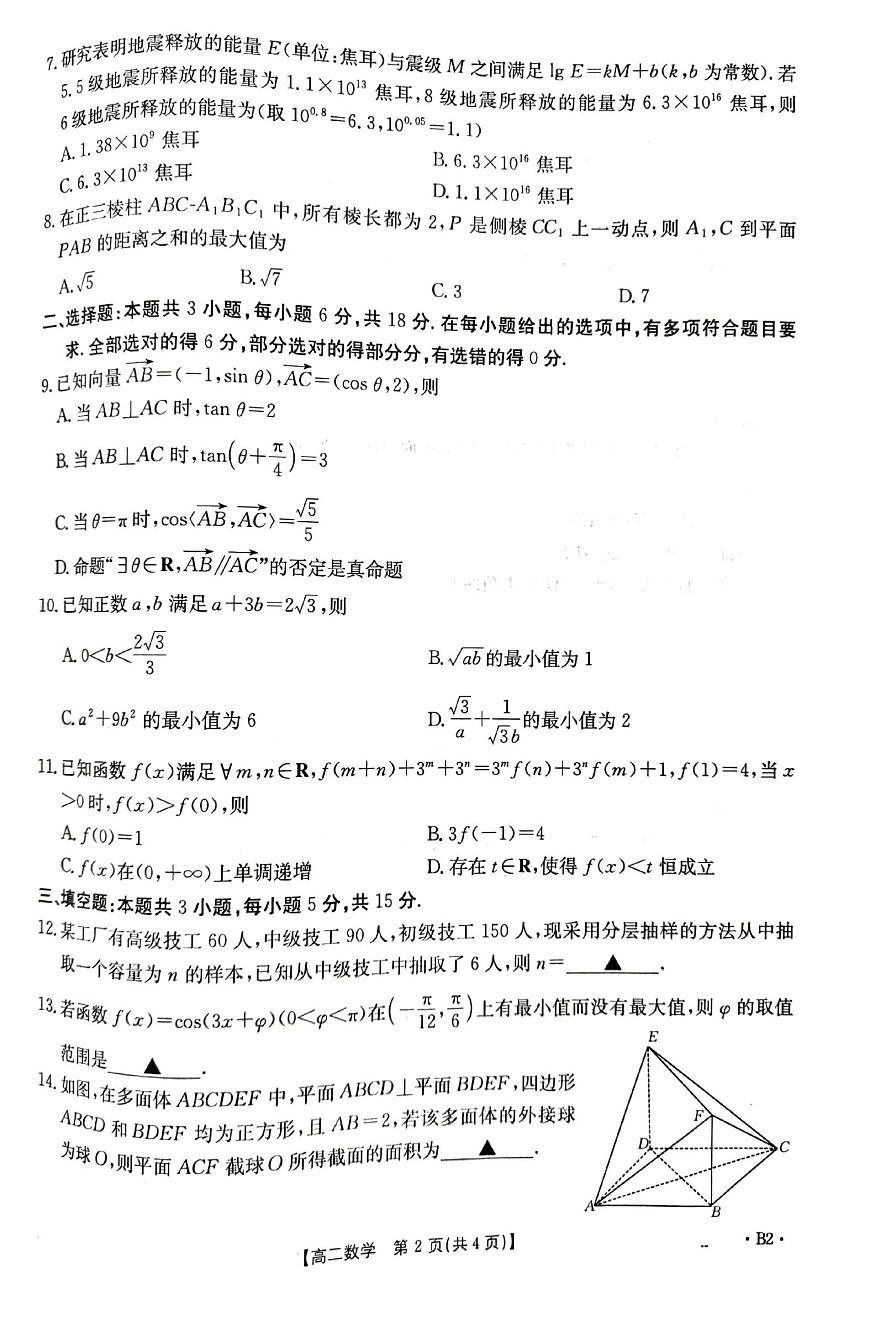 7.研究表明地震释放的能量 E(单位:焦耳)与震级 M 之间满足 lg E=kM+b(k,b 为常数).若
5.5 级地震所释放的能量为 1.1×10¹³ 焦耳,8 级地震所释放的能量为 6.3×10¹⁶ 焦耳,则
6 级地震所释放的能量为(取 10^0.8=6.3,10^0.05=1.1)
A.1.38×10⁹ 焦耳 B.6.3×10¹⁶ 焦耳
C.6.3×10¹³ 焦耳 D.1.1×10¹⁶ 焦耳
8.在正三棱柱 ABC-A₁B₁C₁ 中,所有棱长都为 2,P 是侧棱 CC₁ 上一动点,则 A₁,C 到平面
PAB 的距离之和的最大值为
A.√5 B.√7 C.3 D.7
二、选择题:本题共 3 小题,每小题 6 分,共 18 分.在每小题给出的选项中,有多项符合题目要
求.全部选对的得 6 分,部分选对的得部分分,有选错的得 0 分.
9.已知向量 $\overrightarrow{AB}$=(-1,sin θ),$\overrightarrow{AC}$=(cos θ,2),则
A.当 AB⊥AC 时,tan θ=2
B.当 AB⊥AC 时,tan(θ+$\frac{π}{4}$)=3
C.当 θ=π 时,cos⟨$\overrightarrow{AB}$,$\overrightarrow{AC}$⟩=$\frac{\sqrt{5}}{5}$
D.命题“∃θ∈R,$\overrightarrow{AB}$∥$\overrightarrow{AC}$”的否定是真命题
10.已知正数 a,b 满足 a+3b=2√3,则
A.0<b<$\frac{2\sqrt{3}}{3}$ B.$\sqrt{ab}$的最小值为 1
C.a²+9b² 的最小值为 6 D.$\frac{\sqrt{3}}{a}$+$\frac{1}{\sqrt{3}b}$的最小值为 2
11.已知函数 f(x)满足∀m,n∈R,f(m+n)+3ᵐ+3ⁿ=3ᵐf(n)+3ⁿf(m)+1,f(1)=4,当 x
>0 时,f(x)>f(0),则
A.f(0)=1 B.3f(-1)=4
C.f(x)在(0,+∞)上单调递增 D.存在 t∈R,使得 f(x)<t 恒成立
三、填空题:本题共 3 小题,每小题 5 分,共 15 分.
12.某工厂有高级技工 60 人,中级技工 90 人,初级技工 150 人,现采用分层抽样的方法从中抽
取一个容量为 n 的样本,已知从中级技工中抽取了 6 人,则 n=____▲____.
13.若函数 f(x)=cos(3x+φ)(0<φ<π)在(-$\frac{π}{12}$,$\frac{π}{6}$)上有最小值而没有最大值,则 φ 的取值
范围是____▲____.
14.如图,在多面体 ABCDEF 中,平面 ABCD⊥平面 BDEF,四边形
ABCD 和 BDEF 均为正方形,且 AB=2,若该多面体的外接球
为球 O,则平面 ACF 截球 O 所得截面的面积为____▲____.
E
F
D
C
A
B
【高二数学 第 2 页(共 4 页)】
·B2·